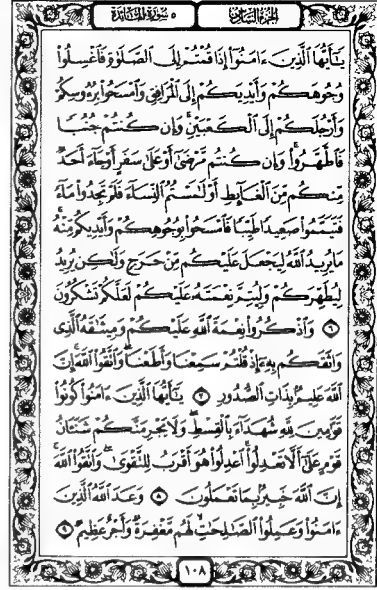 الجزء السادس
٥ سورة المائدة
يَٰٓأَيُّهَا ٱلَّذِينَ ءَامَنُوٓا۟ إِذَا قُمْتُمْ إِلَى ٱلصَّلَوٰةِ فَٱغْسِلُوا۟
وُجُوهَكُمْ وَأَيْدِيَكُمْ إِلَى ٱلْمَرَافِقِ وَٱمْسَحُوا۟ بِرُءُوسِكُمْ
وَأَرْجُلَكُمْ إِلَى ٱلْكَعْبَيْنِ ۚ وَإِن كُنتُمْ جُنُبًا
فَٱطَّهَّرُوا۟ ۚ وَإِن كُنتُم مَّرْضَىٰٓ أَوْ عَلَىٰ سَفَرٍ أَوْ جَآءَ أَحَدٌ
مِّنكُم مِّنَ ٱلْغَآئِطِ أَوْ لَٰمَسْتُمُ ٱلنِّسَآءَ فَلَمْ تَجِدُوا۟ مَآءً
فَتَيَمَّمُوا۟ صَعِيدًا طَيِّبًا فَٱمْسَحُوا۟ بِوُجُوهِكُمْ وَأَيْدِيكُم مِّنْهُ ۚ
مَا يُرِيدُ ٱللَّهُ لِيَجْعَلَ عَلَيْكُم مِّنْ حَرَجٍ وَلَٰكِن يُرِيدُ
لِيُطَهِّرَكُمْ وَلِيُتِمَّ نِعْمَتَهُۥ عَلَيْكُمْ لَعَلَّكُمْ تَشْكُرُونَ
٦ وَٱذْكُرُوا۟ نِعْمَةَ ٱللَّهِ عَلَيْكُمْ وَمِيثَٰقَهُ ٱلَّذِى
وَاثَقَكُم بِهِۦٓ إِذْ قُلْتُمْ سَمِعْنَا وَأَطَعْنَا ۖ وَٱتَّقُوا۟ ٱللَّهَ ۚ إِنَّ
ٱللَّهَ عَلِيمٌۢ بِذَاتِ ٱلصُّدُورِ ٧ يَٰٓأَيُّهَا ٱلَّذِينَ ءَامَنُوا۟ كُونُوا۟
قَوَّٰمِينَ لِلَّهِ شُهَدَآءَ بِٱلْقِسْطِ ۖ وَلَا يَجْرِمَنَّكُمْ شَنَـَٔانُ
قَوْمٍ عَلَىٰٓ أَلَّا تَعْدِلُوا۟ ۚ ٱعْدِلُوا۟ هُوَ أَقْرَبُ لِلتَّقْوَىٰ ۖ وَٱتَّقُوا۟ ٱللَّهَ ۚ
إِنَّ ٱللَّهَ خَبِيرٌۢ بِمَا تَعْمَلُونَ ٨ وَعَدَ ٱللَّهُ ٱلَّذِينَ
ءَامَنُوا۟ وَعَمِلُوا۟ ٱلصَّٰلِحَٰتِ ۙ لَهُم مَّغْفِرَةٌ وَأَجْرٌ عَظِيمٌ ٩
١٠٨